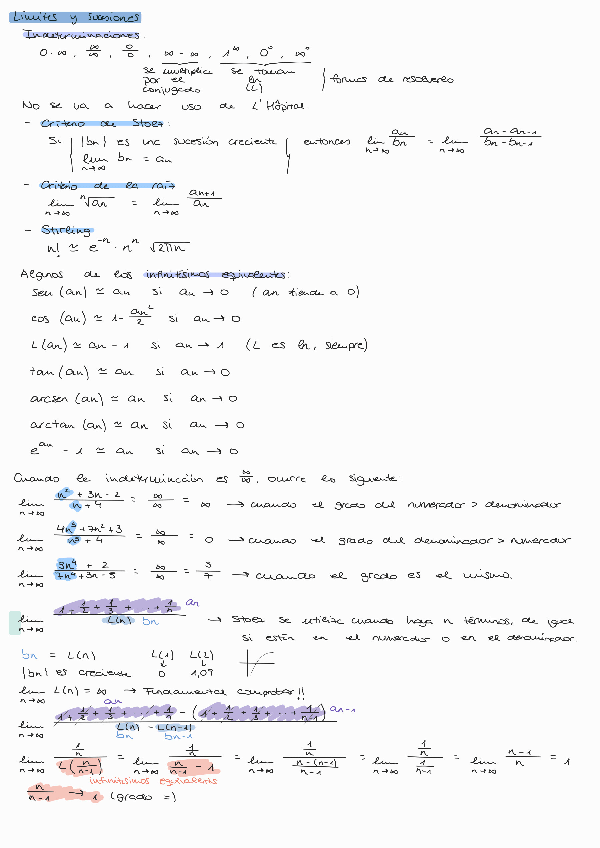 Límites y Sucesiones
Indeterminaciones:
0·∞, ∞/∞, 0/0, ∞-∞, 1^∞, 0^0, ∞^0
se multiplica por el conjugado
se toman ln (L)
formas de resolverlo
No se va a hacer uso de L'Hôpital
- Criterio de Stolz:
Si {bn} es una sucesión creciente entonces lim n→∞ an/bn = lim n→∞ an-an-1/bn-bn-1
lim n→∞ bn = an
- Criterio de la raíz
lim n→∞ ⁿ√an = lim n→∞ an+1/an
- Stirling
n! ≃ e^-n · n^n √2πn
Algunos de los infinitésimos equivalentes:
sen (an) ≃ an si an → 0 (an tiende a 0)
cos (an) ≃ 1 - an²/2 si an → 0
L(an) ≃ an - 1 si an → 1 (L es ln, siempre)
tan (an) ≃ an si an → 0
arcsen (an) ≃ an si an → 0
arctan (an) ≃ an si an → 0
e^an - 1 ≃ an si an → 0
Cuando la indeterminación es ∞/∞, ocurre lo siguiente
lim n→∞ n²+3n-2/n+4 = ∞/∞ = ∞ → cuando el grado del numerador > denominador
lim n→∞ = ∞/∞ = 0 → cuando el grado del denominador > numerador
lim n→∞ 3n⁴+2/7n⁴+3n-5 = ∞/∞ = 3/7 → cuando el grado es el mismo.
lim n→∞ 1+1/2+1/3+...+1/n an / L(n) bn → Stolz se utiliza cuando haya n términos, da igual
si están en el numerador o en el denominador.
bn = L(n) L(1) L(2)
{bn} es creciente 0 1,09
lim n→∞ L(n) = ∞ → Fundamental comprobar!!
an
lim n→∞ 1+1/2+1/3+...+1/n - (1+1/2+1/3+...+1/n-1) an-1 / L(n) - L(n-1)
bn bn-1
lim n→∞ 1/n / L(n/n-1) = lim n→∞ 1/n / n/n-1 - 1 = lim n→∞ 1/n / n-(n-1)/n-1 = lim n→∞ 1/n / 1/n-1 = lim n→∞ n-1/n = 1
infinitésimos equivalentes
n/n-1 → 1 (grado =)